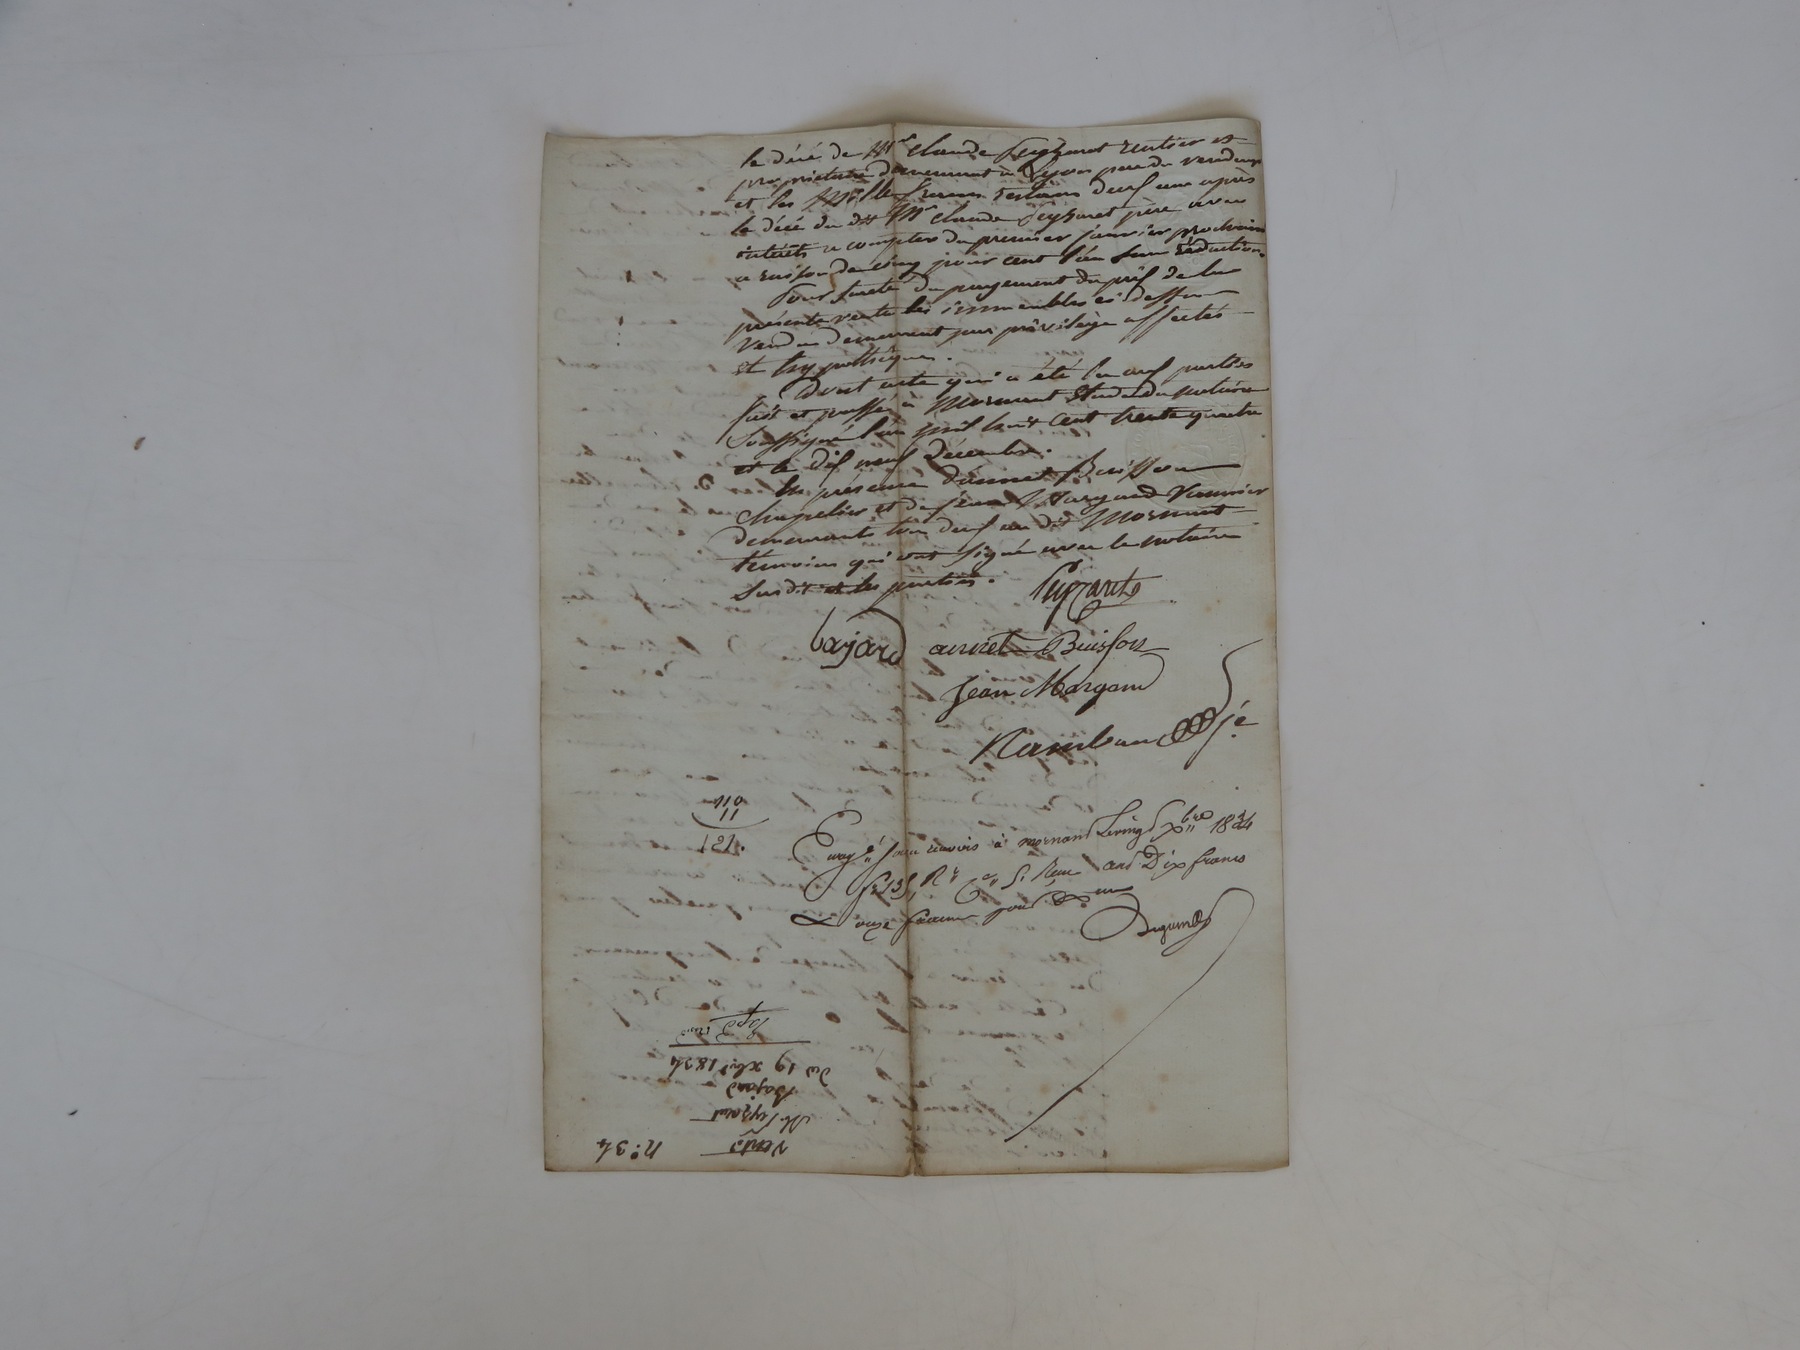 le décé de Mr Claude Peyzaret rentier et
propriétaire demeurant à Lyon père du vendeur
et les Mille francs restans deux ans après
le décé du dit Mr Claude Peyzaret père avec
intérêts a compter du premier janvier prochain
a raison de cinq pour cent l'an sans réduction.
Pour sureté du payement du prix de la
présente vente les immeubles ci-dessus
vendus demeurent par privilège affectés
et hypothéqués.
Dont acte qui a été lu aux parties
fait et passé a Mornant Etude du notaire
soussigné l'an mil huit cent trente quatre
et le dix neuf décembre.
En présence d'annet Buisson
chapelier et de jean Margand Vannier
demeurants tous deux au dit Mornant
témoins qui ont signé avec le notaire
susdit et les parties.
Peyzaret
bajard annet Buisson
jean Margand
à mornant le vingt Xbre 1834
cent Dix francs
& onze francs pour
110
11
121
n.º 34
Vente
M. Peyzaret
Bajard
du 19 Xbre 1834